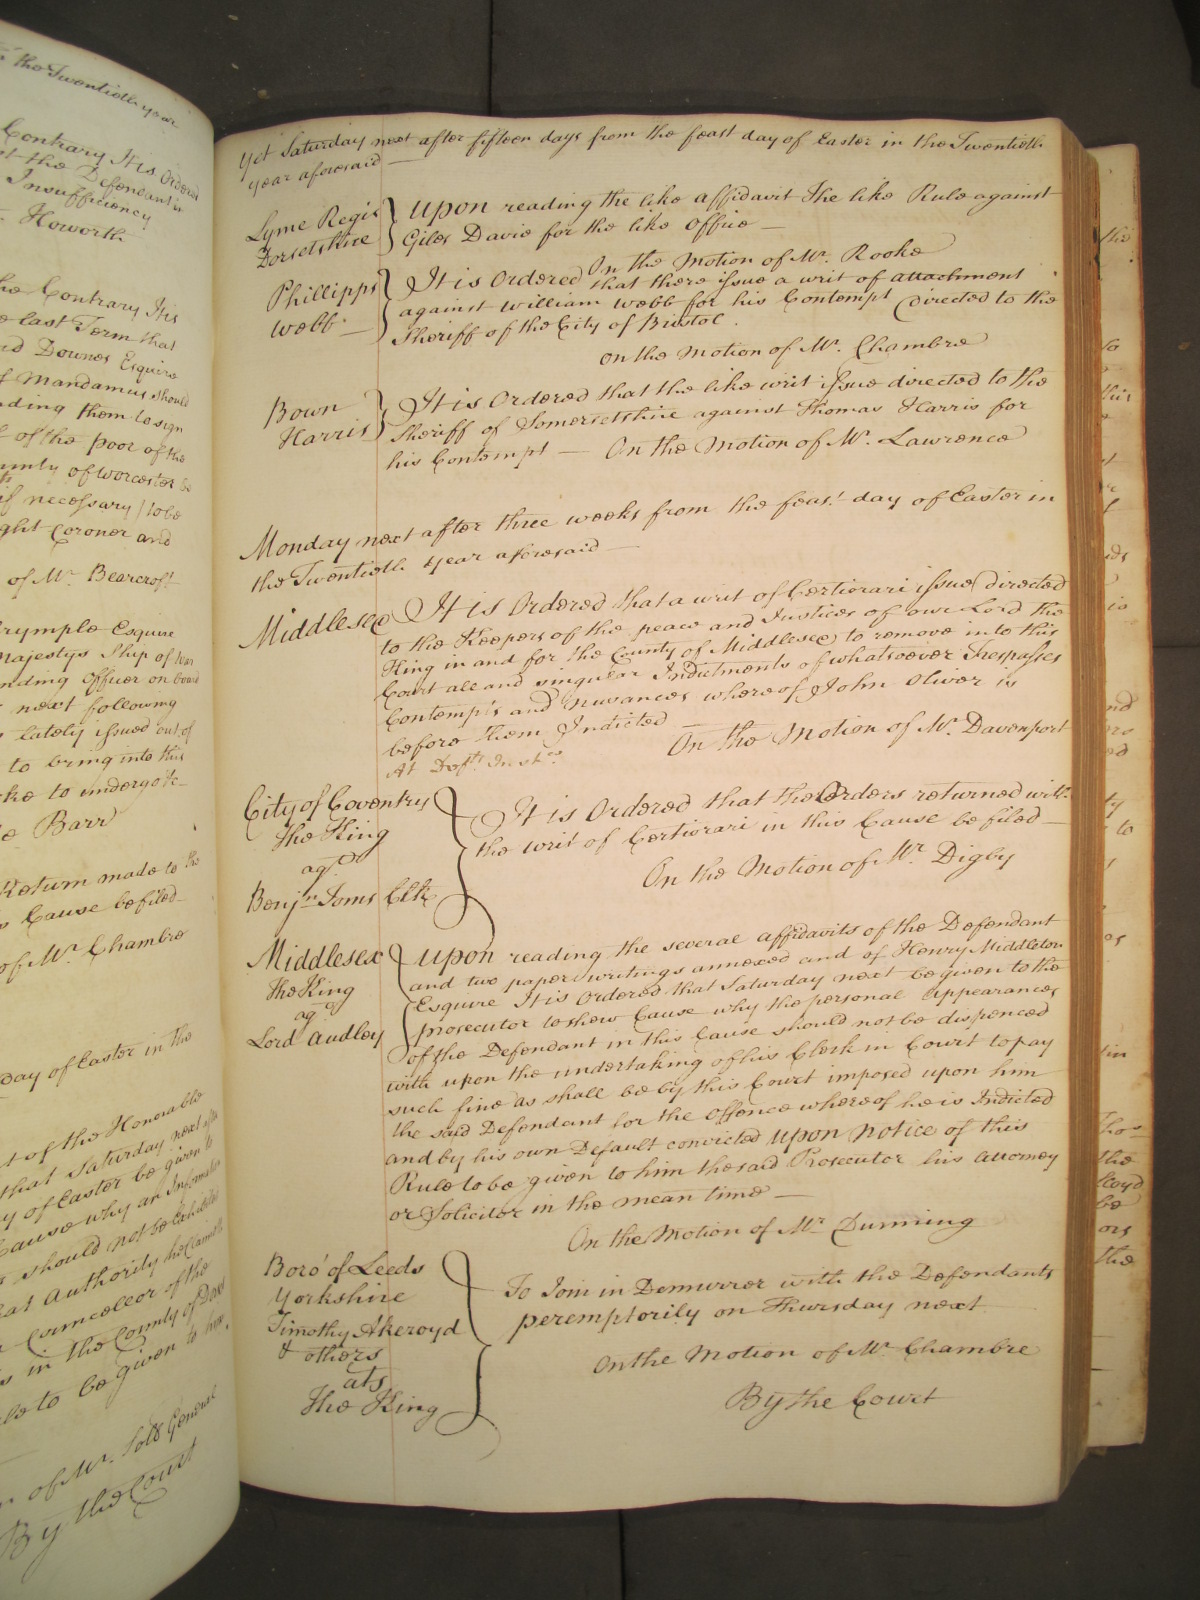 the Twentieth year
Contrary It is Ordered
the Defendant's
Insufficiency
Howorth
the Contrary It is
last Term that
Downes Esquire
of Mandamus should
them to sign
of the poor of the
of Worcester
if necessary / to be
Coroner and
of Mr. Bearcroft
Esquire
Majestys Ship of War
Officer on board
next following
lately issued out of
to bring into this
to undergo &c
Barr
Return made to the
Cause be filed
of Mr. Chambre
day of Easter in the
of the Honorable
that Saturday next after
of Easter be given to
Cause why an Information
should not be Exhibited
Authority he Claimeth
of the
in the County of
to be given to him
of Mr. Sollr General
By the Court
Yet Saturday next after fifteen days from the feast day of Easter in the Twentieth
year aforesaid —
Lyme Regis
Dorsetshire
Upon reading the like affidavit The like Rule against
Giles Davie for the like Office —
On the Motion of Mr. Rooke
Phillipps
Webb
It is Ordered that there issue a writ of attachment
against William Webb for his Contempt directed to the
Sheriff of the City of Bristol .
On the Motion of Mr. Chambre
Bown
Harris
It is Ordered that the like writ issue directed to the
Sheriff of Somersetshire against Thomas Harris for
his Contempt — On the Motion of Mr. Lawrence
Monday next after three weeks from the feast day of Easter in
the Twentieth year aforesaid —
Middlesex It is Ordered that a writ of Certiorari issue directed
to the Keepers of the peace and Justices of our Lord the
King in and for the County of Middlesex to remove into this
Court all and singular Indictments of whatsoever Trespasses
Contempts and Nuvances whereof John Oliver is
before them Indicted —
On the Motion of Mr. Davenport
At Deft. Inst.ce
City of Coventry
The King
agt.
Benjn. Joms Clk
It is Ordered that the Orders returned with
the writ of Certiorari in this Cause be filed —
On the Motion of Mr. Digby
Middlesex
The King
agt
Lord Audley
Upon reading the several affidavits of the Defendant
and two paper writings annexed and of Henry Middleton
Esquire It is Ordered that Saturday next be given to the
prosecutor to shew Cause why the personal appearances
of the Defendant in this Cause should not be dispenced
with upon the undertaking of his Clerk in Court to pay
such fine as shall be by this Court imposed upon him
the said Defendant for the Offence whereof he is Indicted
and by his own Default convicted Upon Notice of this
Rule to be given to him the said Prosecutor his Attorney
or Solicitor in the mean time —
On the Motion of Mr. Dunning
Boro' of Leeds
Yorkshire
Timothy Akeroyd
& others
ats
The King
To Join in Demurrer with the Defendants
peremptorily on Thursday next
On the Motion of Mr. Chambre
By the Court